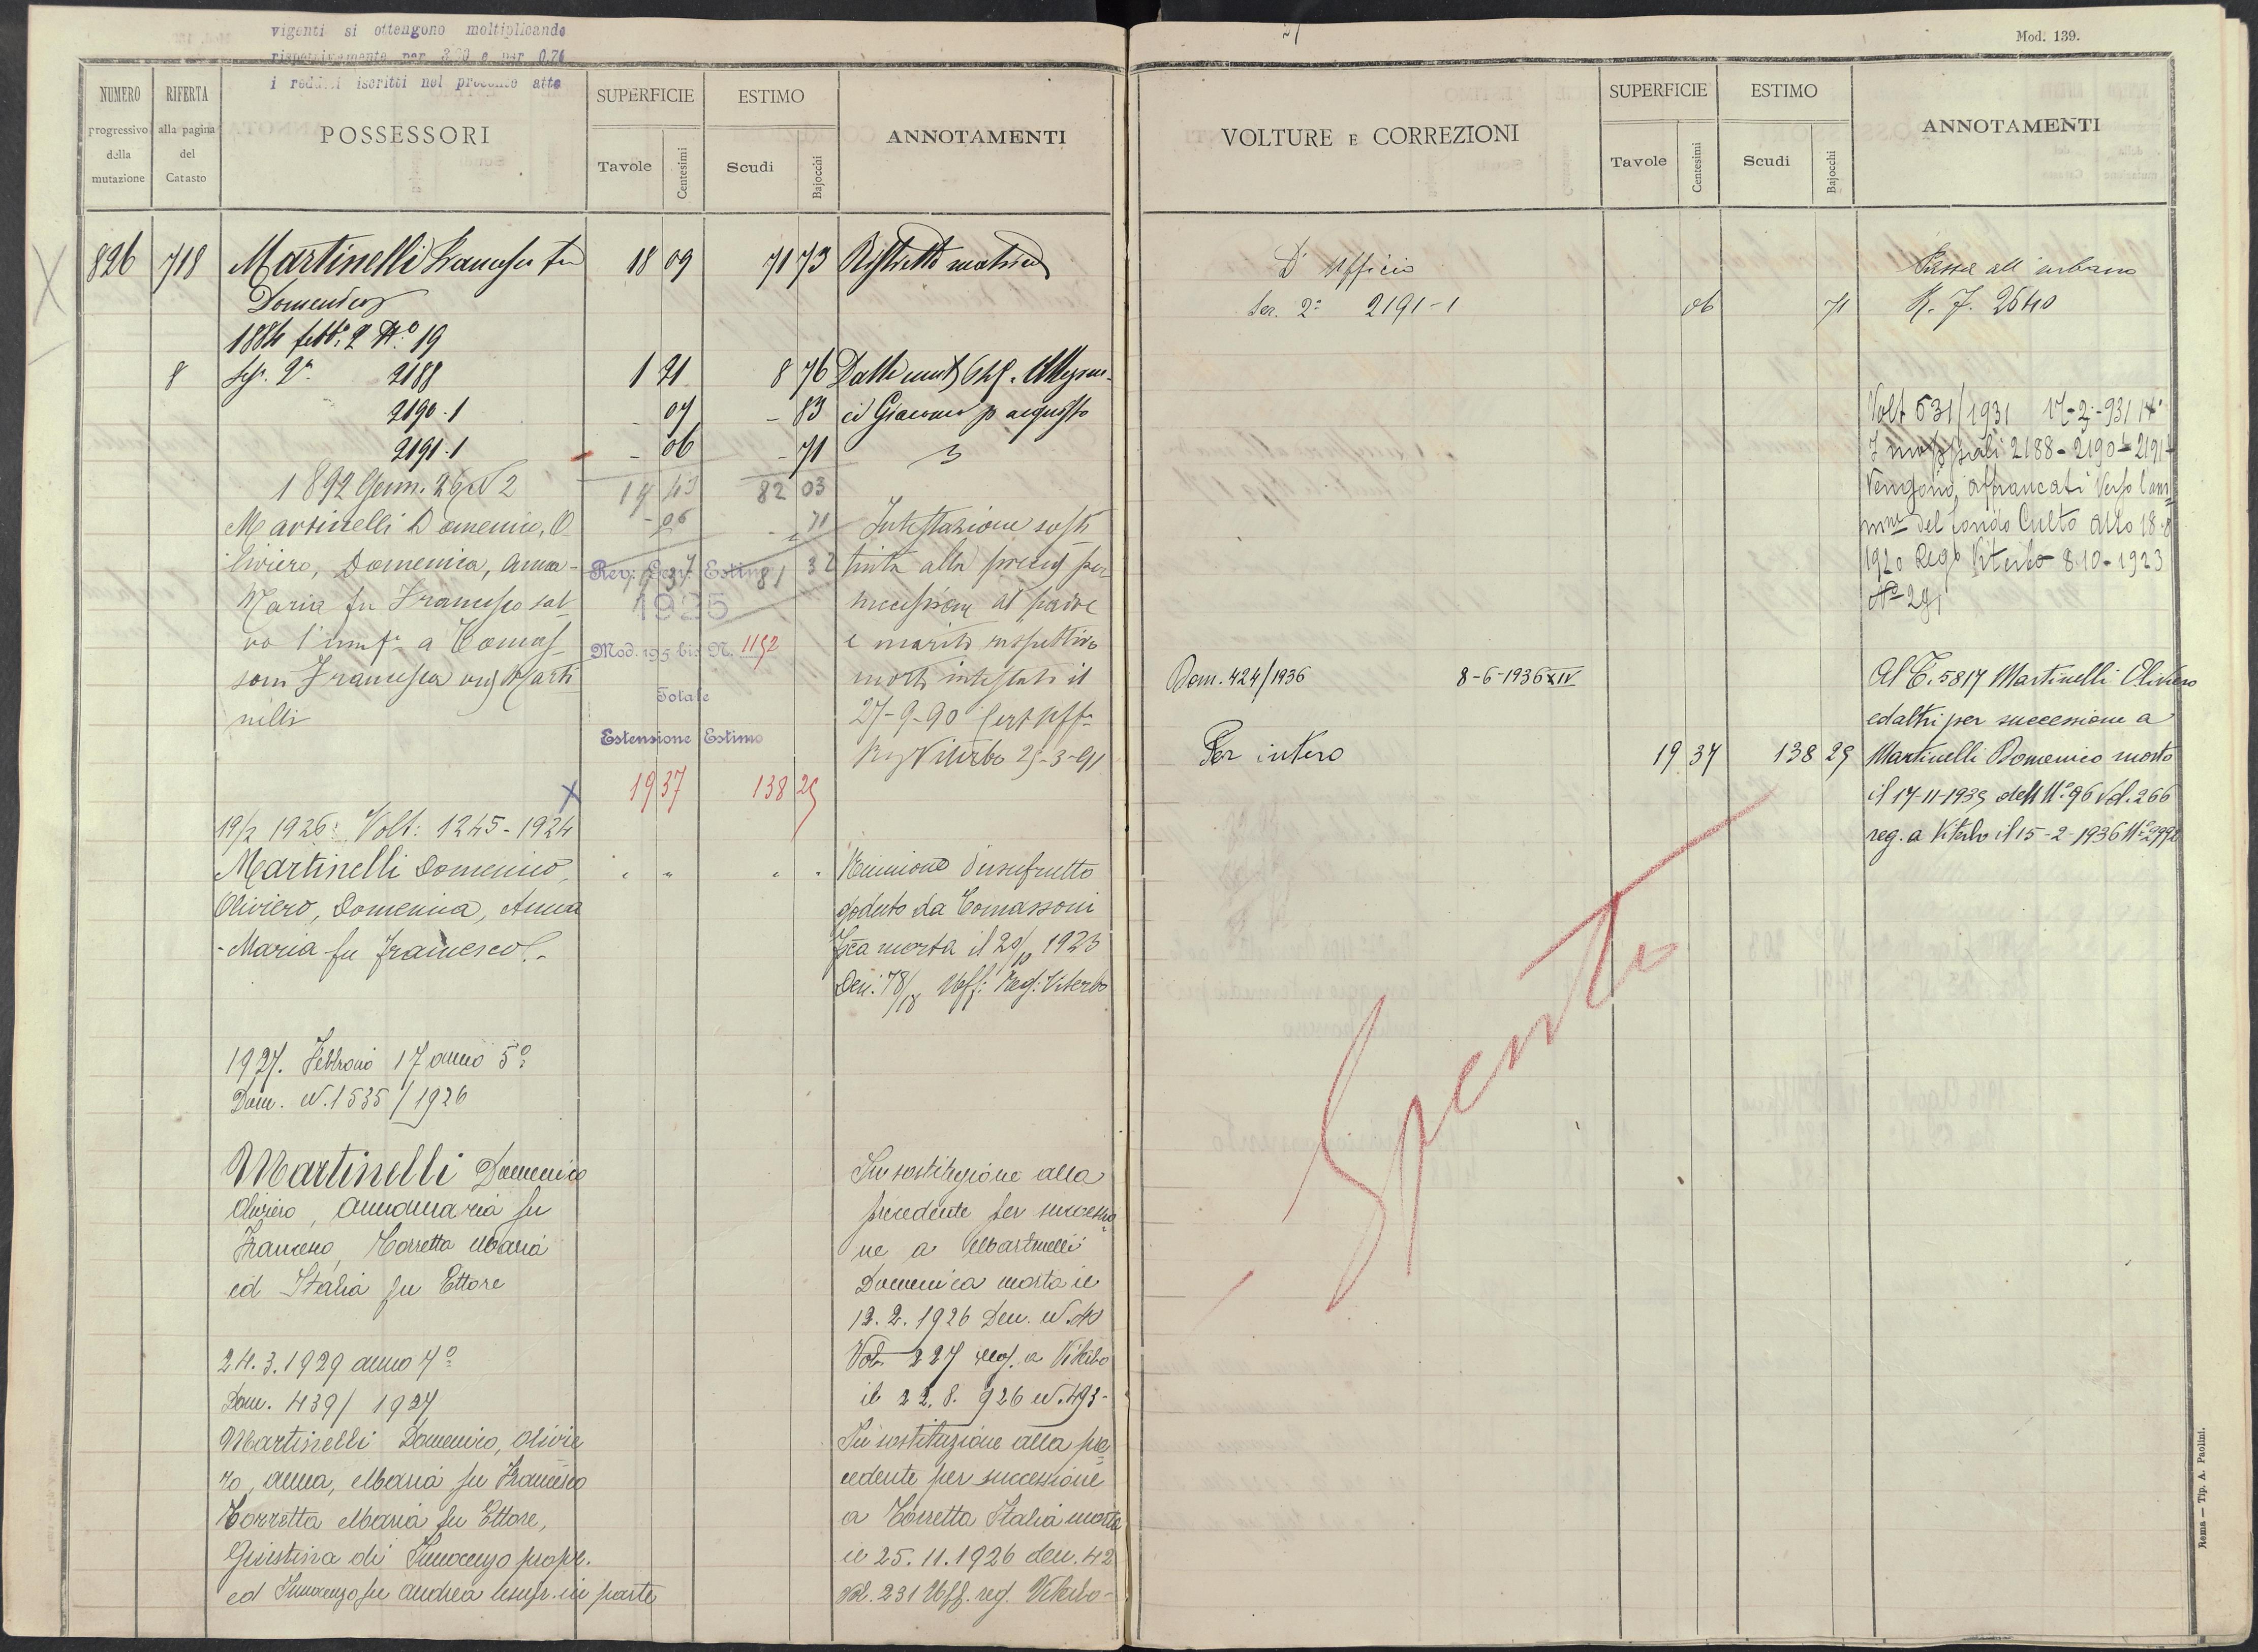 vigenti si ottengono moltiplicando
rispettivamente per 3.50 e per 0.76
i redditi iscritti nel presente atto
NUMERO
progressivo
della
mutazione
RIFERTA
alla pagina
del
Catasto
POSSESSORI
SUPERFICIE
Tavole
Centesimi
ESTIMO
Scudi
Bajocchi
ANNOTAMENTI
826 718 Martinelli Francesco fu 18 09 71 73 Ristretto matrice
Domenico
1884 febb. 2 N° 19
8 Sez. 2a 2188 1 21 8 76
2190-1 - 07 - 83 Giacomo p acquisto
2191-1 - 06 - 71
1892 Genn. 26 N 2 19 43 82 03
- 06 - 71
Martinelli Domenico, O
liviero, Domenica, Anna-
Maria fu Francesco sal
vo l'usuf. a Tomas
soni Francesca vedª Marti
nelli
Intestazione sosti
tuita alla preced per
successione al padre
e marito rispettivo
morto intestato il
27-9-90
Viterbo 25-3-91
Rev: Gen. Estimi
19 37 81 32
1925
Mod. 195 bis N. 1152
Totale
Estensione Estimo
19 37 138 25
19/2 1926: Volt: 1245-1924
Martinelli Domenico,
Oliviero, Domenica, Anna
-Maria fu Francesco.-
Riunione d'usufrutto
goduto da Tomassoni
Fca morta il 20/10 1923
Den: 78/18 Uff: Reg: Viterbo
1927. Febbraio 17 anno 5°
Dom. N. 1535/1926
Martinelli Domenico
Oliviero, Annamaria fu
Francesco, Torretta Maria
ed Italia fu Ettore
In sostituzione alla
precedente per successio
ne a Martinelli
Domenica morta il
13.2.1926 Den. N.
Vol. 227 reg. a Viterbo
il 22.8.926 N. 493-
24.3.1929 anno 7°
Dom. 439/1927
Martinelli Domenico, Olivie
ro, Anna, Maria fu Francesco
Torretta Maria fu Ettore,
Giustina di Innocenzo propr.
ed Innocenzo fu Andrea usufr. in parte
In sostituzione alla pre
cedente per successione
a Torretta Italia morta
il 25.11.1926 den. 42
Vol. 231 Uff. reg. Viterbo-
Mod. 139.
VOLTURE E CORREZIONI
SUPERFICIE
Tavole
Centesimi
ESTIMO
Scudi
Bajocchi
ANNOTAMENTI
D'Ufficio Passa all'urbano
Sez. 2ª 2191-1 06 71 R. J. 2640
Volt 531/1931
2188-2190-1-2191-1
Vengono affrancati verso l'am
mne del Fondo Culto atto 18-8
1920 Reg° Viterbo 8-10-1923
N° 291
Dom. 424/1936 8-6-1936 XIV
Per intero 19 37 138 25
Al C. 5817 Martinelli Oliviero
ed altri per successione a
Martinelli Domenico morto
il 17-11-1935 den N° 96 Vol. 266
reg. a Viterbo il 15-2-1936 N° 2992
Spenta
Roma — Tip. A. Paolini.